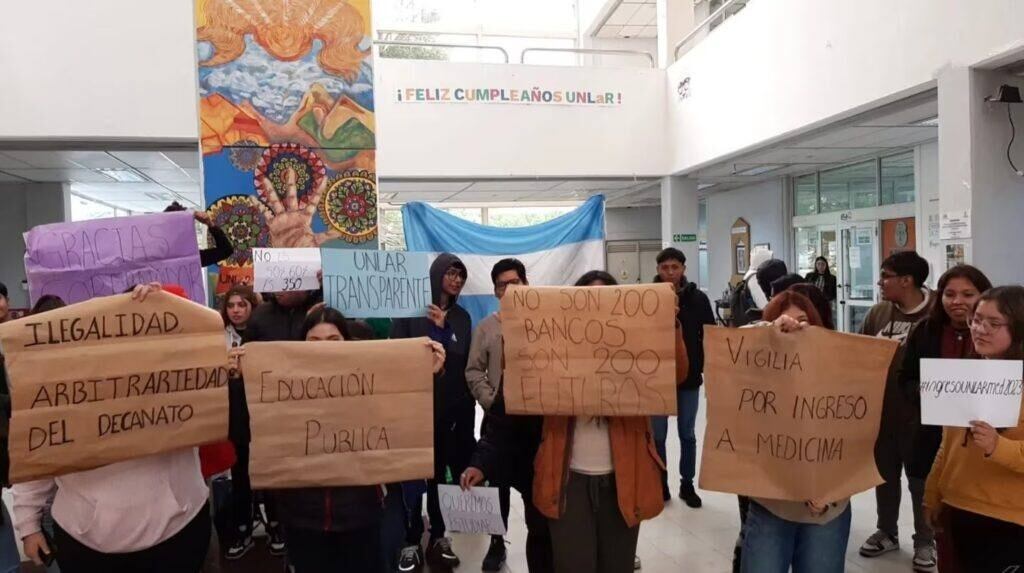 ¡FELIZ CUMPLEAÑOS UNLaR!
GRACIAS
NO
50% 60%
350
UNLAR
TRANSPARENTE
ILEGALIDAD
ARBITRARIEDAD
DEL DECANATO
EDUCACIÓN
PÚBLICA
NO SON 200
BANCOS
SON 200
FUTUROS
VIGILIA
POR INGRESO
A MEDICINA
#ingresoUNLARmed2023
QUEREMOS
ESTUDIAR
SALIDA